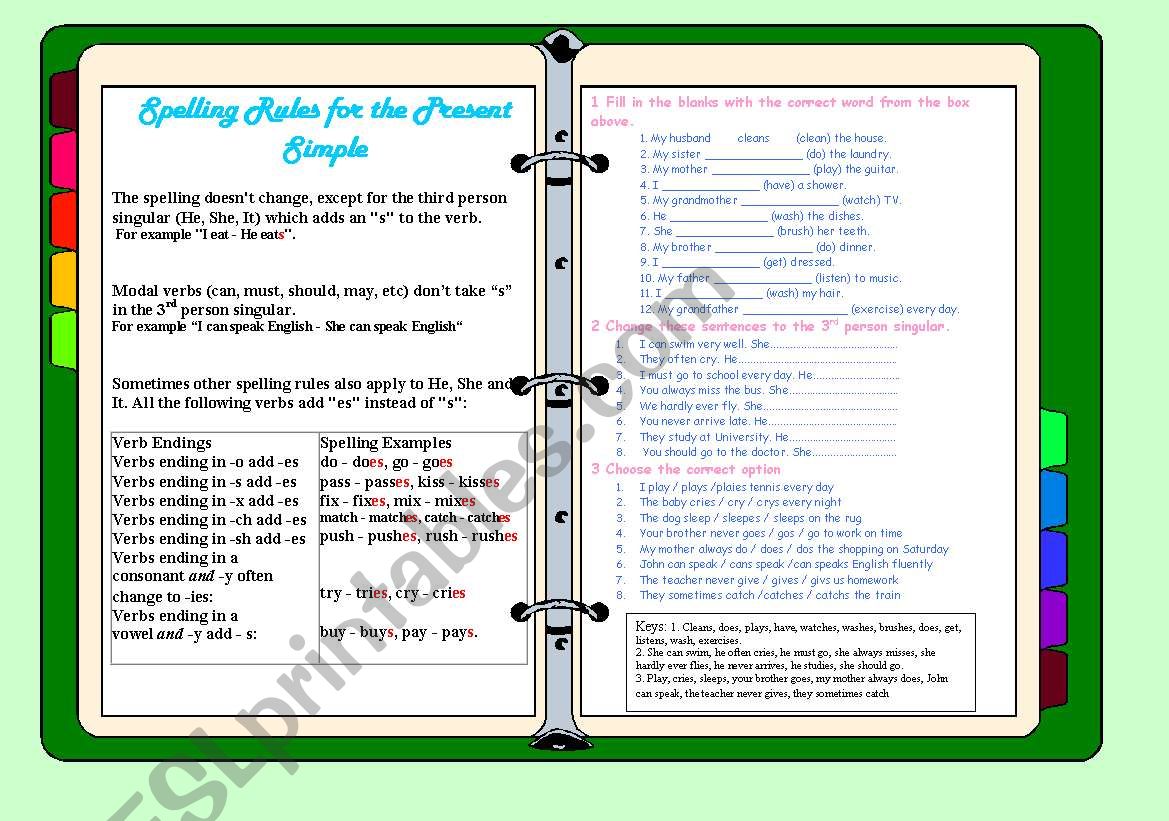 Spelling Rules for the Present
Simple
The spelling doesn't change, except for the third person
singular (He, She, It) which adds an "s" to the verb.
For example "I eat - He eats".
Modal verbs (can, must, should, may, etc) don't take “s”
in the 3rd person singular.
For example “I can speak English - She can speak English“
Sometimes other spelling rules also apply to He, She and
It. All the following verbs add "es" instead of "s":
Verb Endings Spelling Examples
Verbs ending in -o add -es do - does, go - goes
Verbs ending in -s add -es pass - passes, kiss - kisses
Verbs ending in -x add -es fix - fixes, mix - mixes
Verbs ending in -ch add -es match - matches, catch - catches
Verbs ending in -sh add -es push - pushes, rush - rushes
Verbs ending in a
consonant and -y often
change to -ies: try - tries, cry - cries
Verbs ending in a
vowel and -y add - s: buy - buys, pay - pays.
1 Fill in the blanks with the correct word from the box
above.
1. My husband cleans (clean) the house.
2. My sister ________________ (do) the laundry.
3. My mother ________________ (play) the guitar.
4. I ________________ (have) a shower.
5. My grandmother ________________ (watch) TV.
6. He ________________ (wash) the dishes.
7. She ________________ (brush) her teeth.
8. My brother ________________ (do) dinner.
9. I ________________ (get) dressed.
10. My father ________________ (listen) to music.
11. I ________________ (wash) my hair.
12. My grandfather ________________ (exercise) every day.
2 Change these sentences to the 3rd person singular.
1. I can swim very well. She............................................
2. They often cry. He......................................................
3. I must go to school every day. He..............................
4. You always miss the bus. She.....................................
5. We hardly ever fly. She..............................................
6. You never arrive late. He............................................
7. They study at University. He....................................
8. You should go to the doctor. She.............................
3 Choose the correct option
1. I play / plays /plaies tennis every day
2. The baby cries / cry / crys every night
3. The dog sleep / sleepes / sleeps on the rug
4. Your brother never goes / gos / go to work on time
5. My mother always do / does / dos the shopping on Saturday
6. John can speak / cans speak /can speaks English fluently
7. The teacher never give / gives / givs us homework
8. They sometimes catch /catches / catchs the train
Keys: 1. Cleans, does, plays, have, watches, washes, brushes, does, get,
listens, wash, exercises.
2. She can swim, he often cries, he must go, she always misses, she
hardly ever flies, he never arrives, he studies, she should go.
3. Play, cries, sleeps, your brother goes, my mother always does, John
can speak, the teacher never gives, they sometimes catch
ESLprintables.com